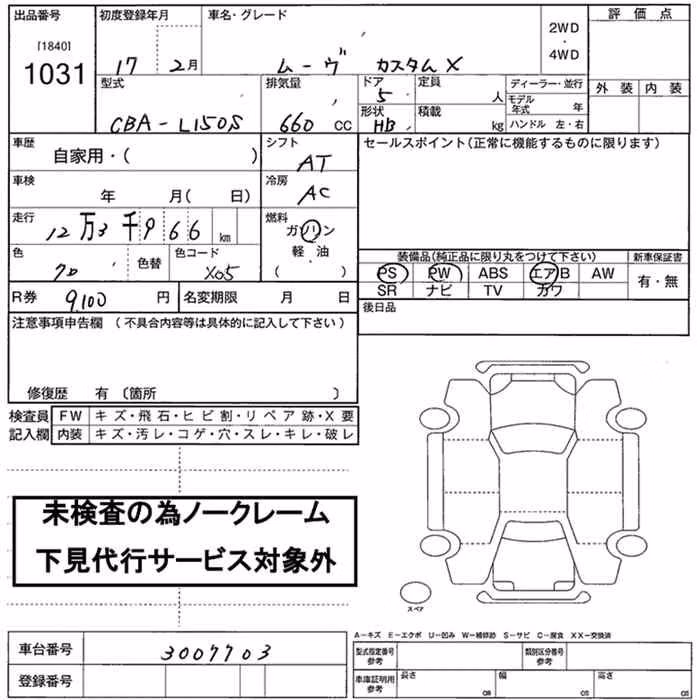 出品番号 初度登録年月 車名・グレード 評価点
[1840]
1031
17 2月 ムーヴ カスタムX
2WD
・
4WD
型式 排気量 ドア 定員 ディーラー・並行 外装 内装
CBA-L150S 660 CC 5 人 モデル年式 年
形状 積載
HB kg ハンドル 左・右
車歴 シフト セールスポイント(正常に機能するものに限ります)
自家用・( ) AT
車検 冷房
年 月( 日) AC
走行 燃料
12万3千966 km ガソリン
軽・油
( )
色 色替 色コード
クロ X05
装備品(純正品に限り丸をつけて下さい) 新車保証書
PS PW ABS エアB AW 有・無
SR ナビ TV カワ
R券 9,100 円 名変期限 月 日 後日品
注意事項申告欄 (不具合内容等は具体的に記入して下さい)
修復歴 有 〔箇所 〕
検査員 FW キズ・飛石・ヒビ割・リペア跡・X要
記入欄 内装 キズ・汚レ・コゲ・穴・スレ・キレ・破レ
未検査の為ノークレーム
下見代行サービス対象外
スペア
A−キズ E−エクボ U−凹み W−補修跡 S−サビ C−腐食 XX−交換済
車台番号 3007703
型式指定番号 参考 類別区分番号 参考
登録番号
車庫証明用 参考 長さ cm 幅 cm 高さ cm